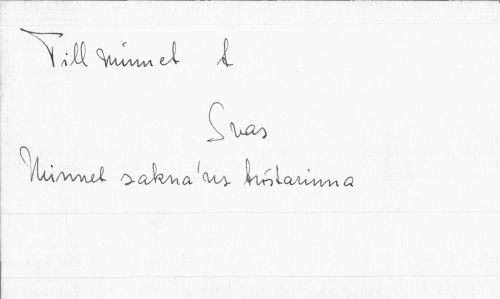 Till minnet t
Svas
Minnet sakna'ns tröstarinna